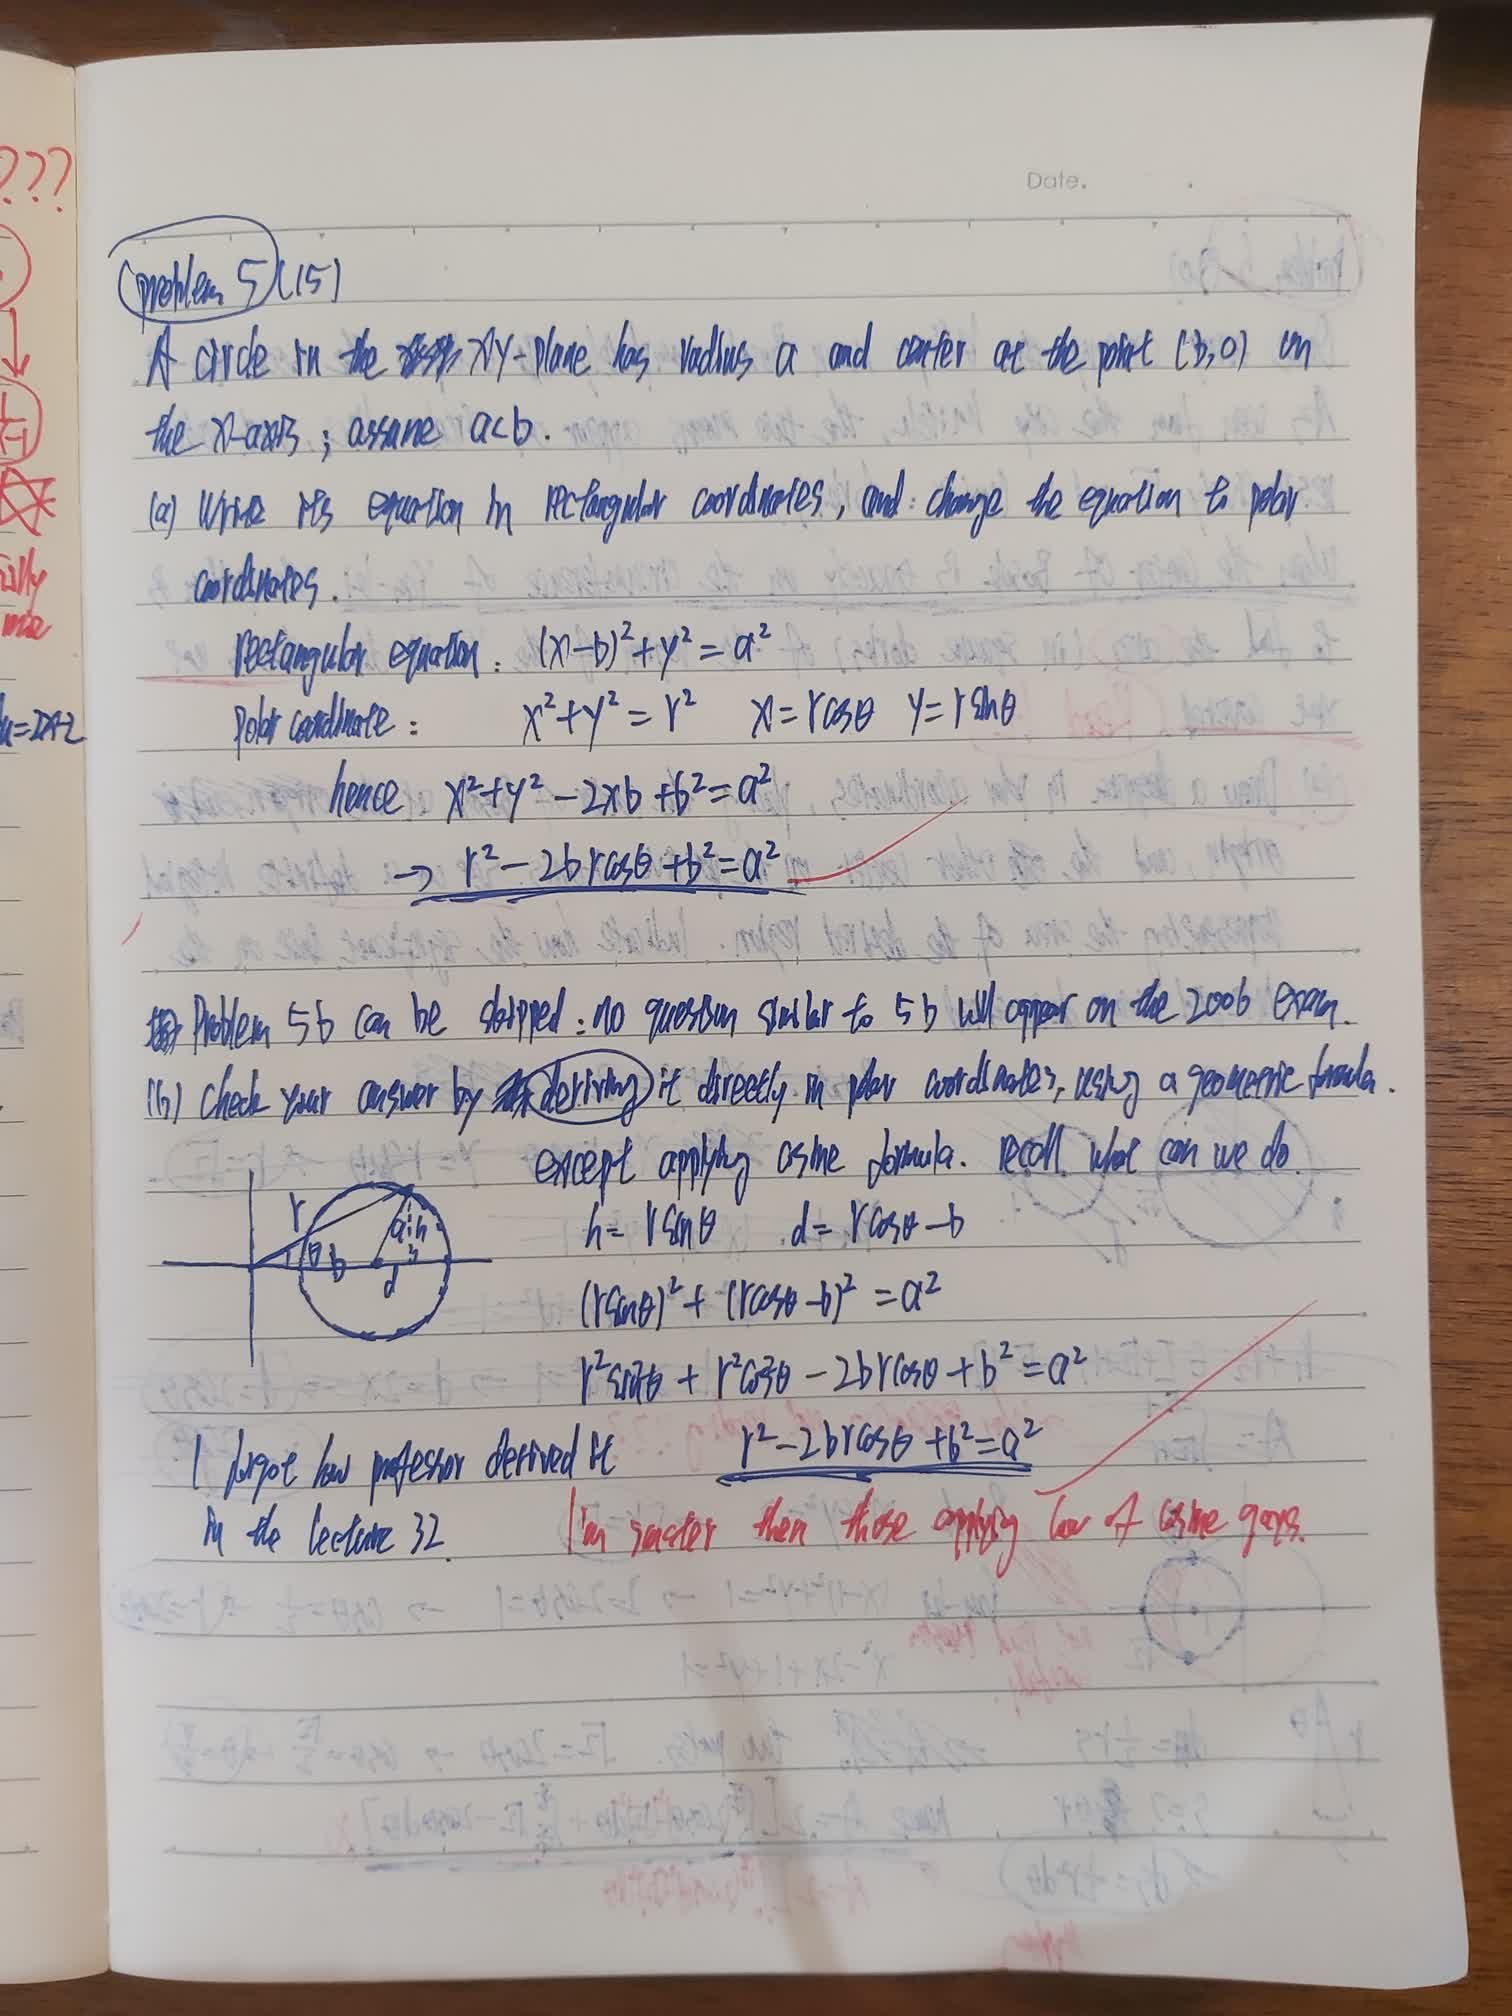 ???
Date.
problem 5 (15)
A circle in the xy-plane has radius a and center at the point (b,0) on
the x-axis; assume a<b.
(a) Write its equation in rectangular coordinates, and change the equation to polar
coordinates.
rectangular equation: (x-b)²+y²=a²
Polar coordinate: x²+y²=r² x=rcosθ y=rsinθ
hence x²+y²-2xb+b²=a²
→ r²-2brcosθ+b²=a²
Problem 5b can be skipped: no question similar to 5b will appear on the 2006 exam.
(b) Check your answer by deriving it directly in polar coordinates, using a geometric formula.
except applying cosine formula. recall what can we do.
r a h θ b d
h=rsinθ d=rcosθ-b
(rsinθ)²+(rcosθ-b)²=a²
r²sin²θ+r²cos²θ-2brcosθ+b²=a²
I forgot how professor derived it r²-2brcosθ+b²=a²
in the lecture 32. I'm smarter then those applying law of cosine guys.